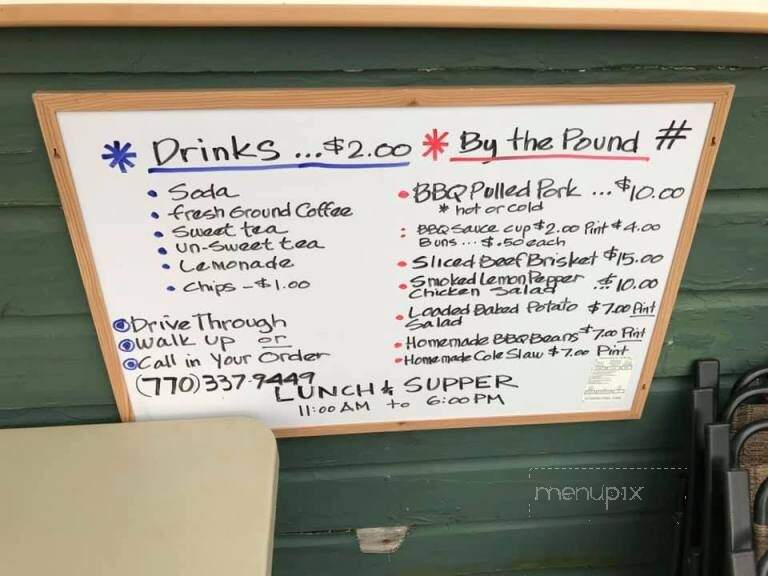 * Drinks ... $2.00
• Soda
• fresh Ground Coffee
• Sweet tea
• un-sweet tea
• Lemonade
• Chips - $1.00
Drive Through
Walk up or
Call in Your Order
(770) 337-9449
* By the Pound #
• BBQ Pulled Pork ... $10.00
* hot or cold
: BBQ Sauce cup $2.00 Pint $4.00
Buns ... $.50 each
• Sliced Beef Brisket $15.00
• Smoked Lemon Pepper
Chicken Salad $10.00
• Loaded Baked Potato $7.00 Pint
Salad
• Homemade BBQ Beans $7.00 Pint
• Homemade Cole Slaw $7.00 Pint
LUNCH & SUPPER
11:00 AM to 6:00 PM
menupix